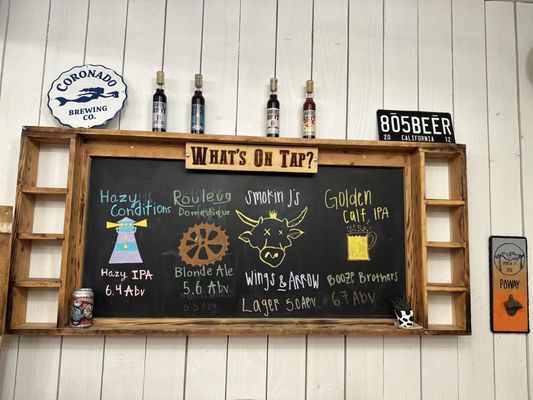 CORONADO
BREWING
CO.
805BEER
20 CALIFORNIA 12
WHAT'S ON TAP?
Hazy
Conditions
Hazy IPA
6.4 Abv
Rouleur
Domestique
Blonde Ale
5.6 Abv
Smokin J's
Wings & Arrow
Lager 5.0 Abv
Golden
Calf, IPA
Booze Brothers
6.7 Abv
POWAY